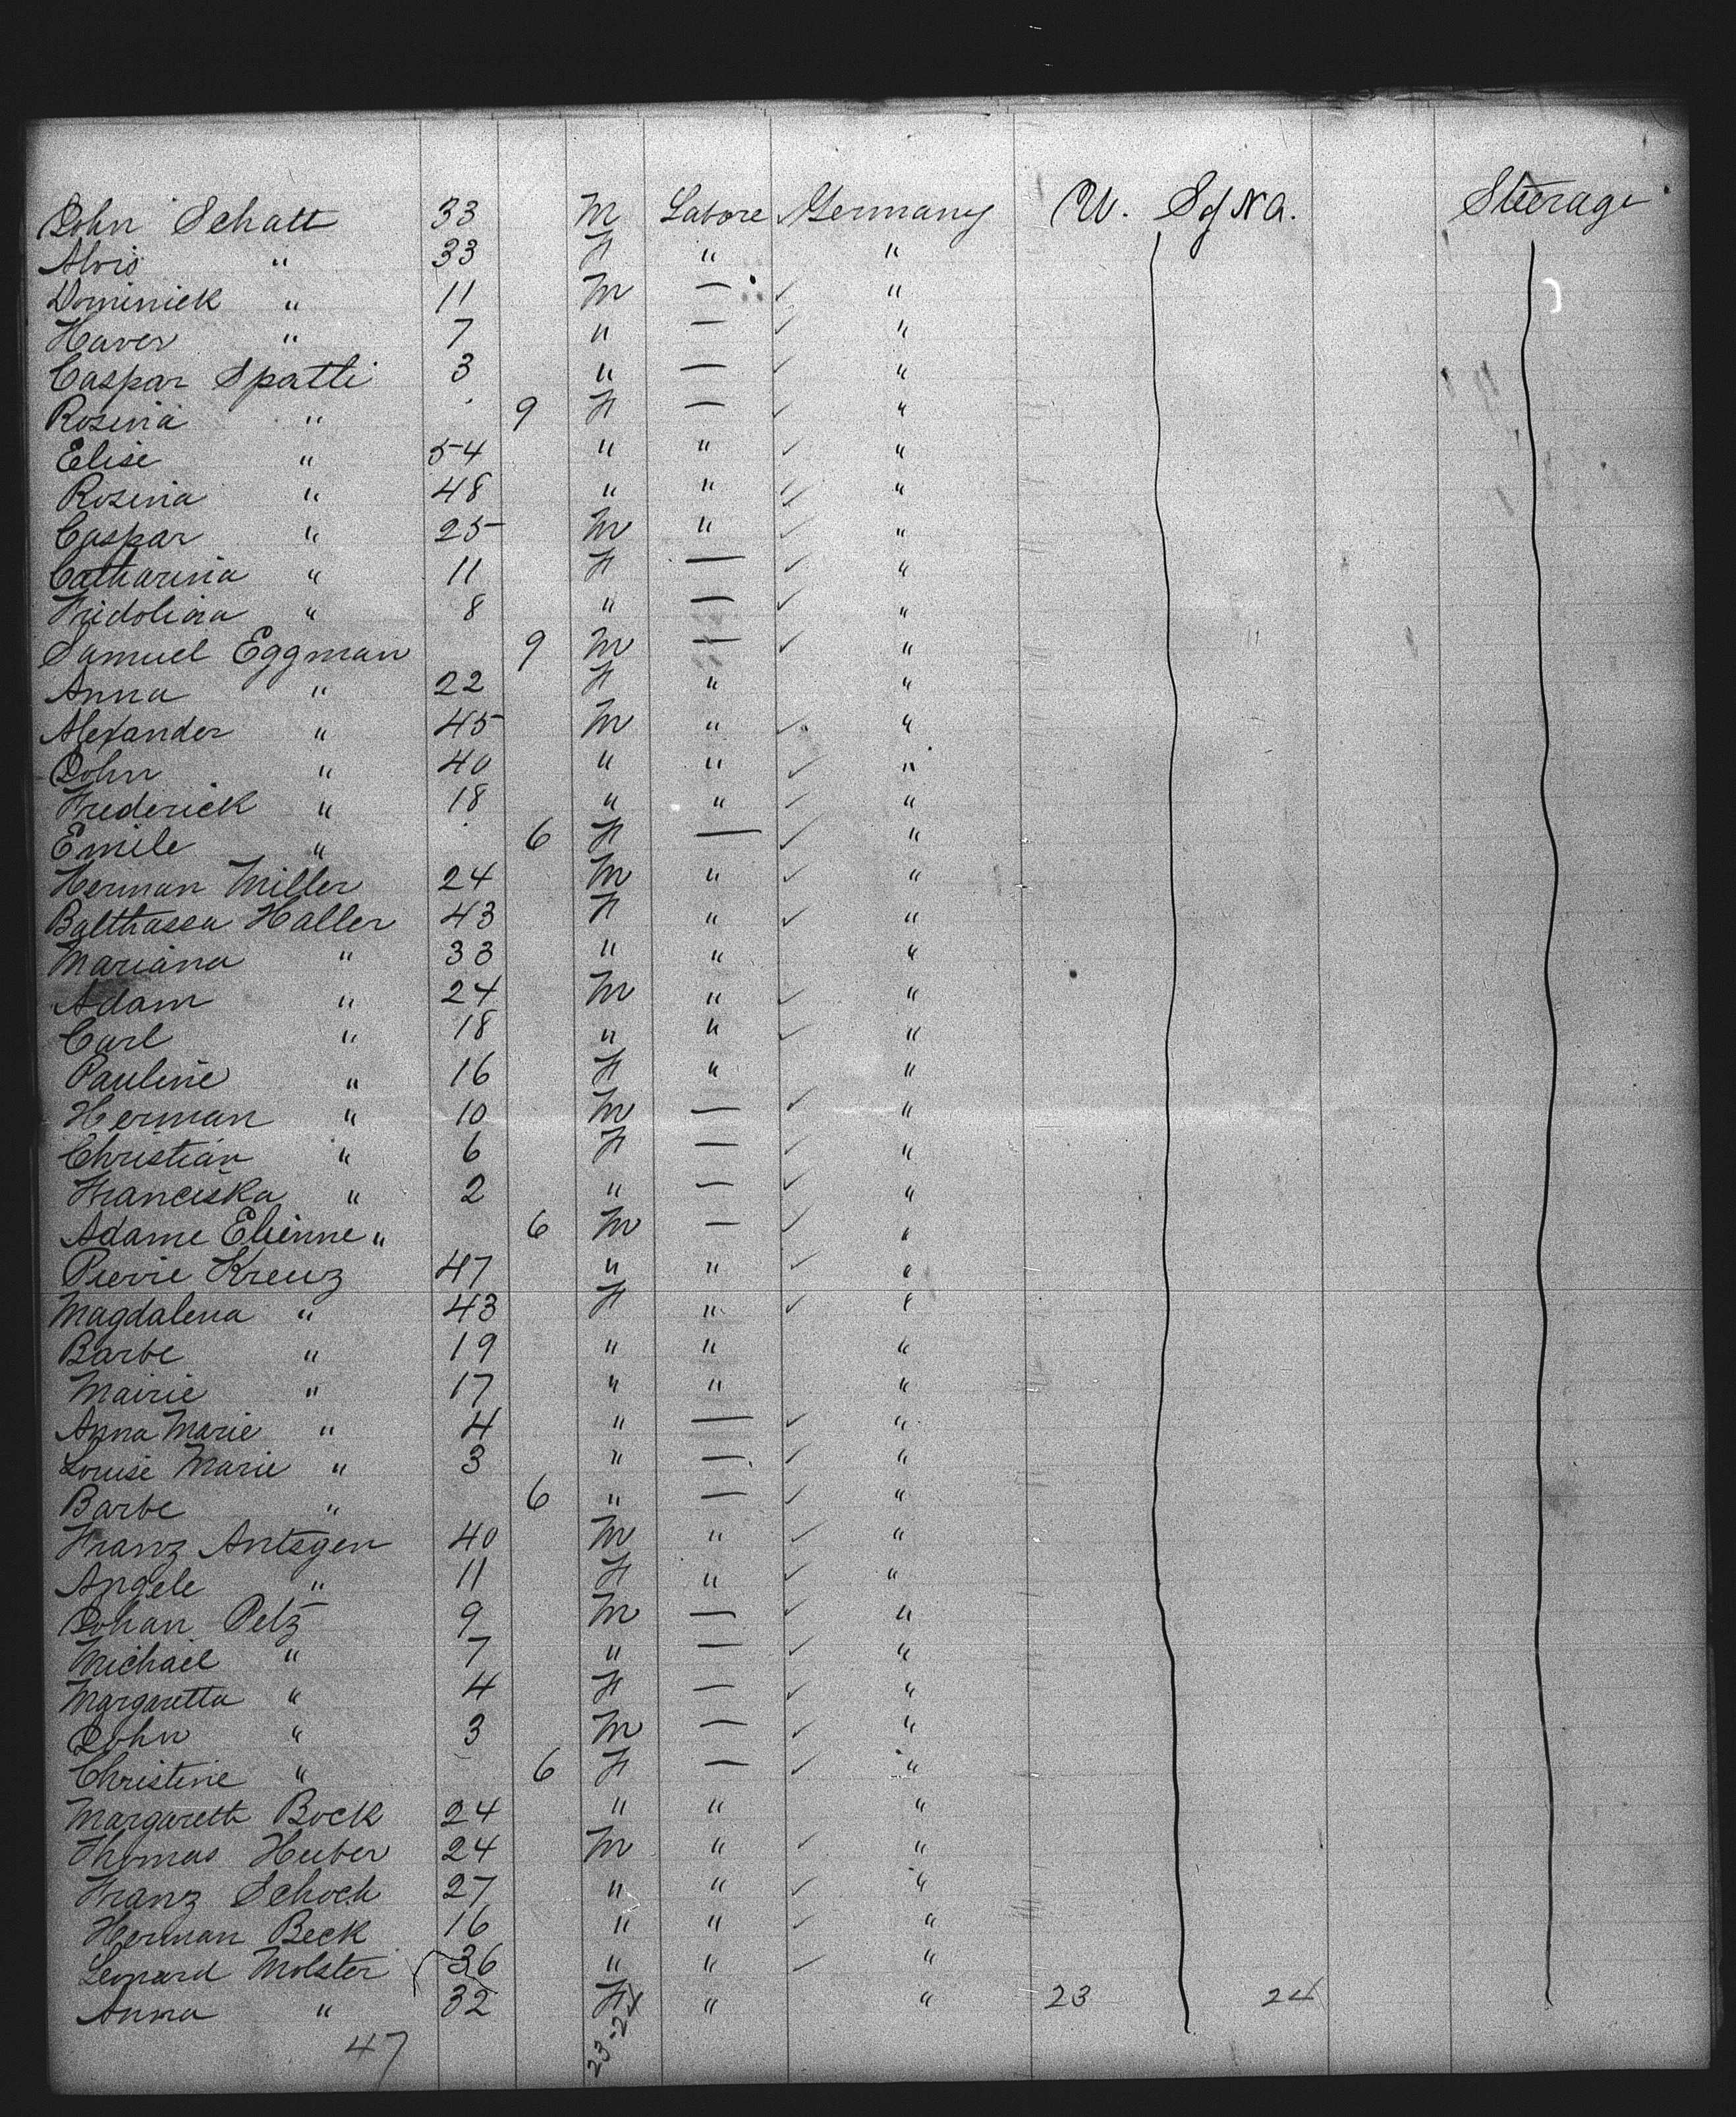 John Schatt 33 M Labore Germany U. S of Na. Steerage
Alvis " 33 F " "
Dominick " 11 M — "
Haver " 7 " — "
Caspar Spatti 3 " — "
Rosina " 9 F — "
Elise " 54 " " "
Rosina " 48 " " "
Caspar " 25 M " "
Catharina " 11 F — "
Fridolina " 8 " — "
Samuel Eggman 9 M — "
Anna " 22 F " "
Alexander " 45 M " "
John " 40 " " "
Frederick " 18 " " "
Emile " 6 F — "
Herman Miller 24 M " "
Balthassa Haller 43 F " "
Mariana " 33 " " "
Adam " 24 M " "
Carl " 18 " " "
Pauline " 16 F " "
Herman " 10 M — "
Christian " 6 F — "
Franciska " 2 " — "
Adame Etienne " 6 M — "
Pierrie Kreuz 47 " " "
Magdalena " 43 F " "
Barbe " 19 " " "
Mairie " 17 " " "
Anna Marie " 4 " — "
Louise Marie " 3 " — "
Barbe " 6 " — "
Franz Antsgen 40 M " "
Angele " 11 F " "
Johan Petz 9 M — "
Michael " 7 " — "
Margaretta " 4 F — "
John " 3 M — "
Christine " 6 F — "
Margareth Bock 24 " " "
Thomas Huber 24 M " "
Franz Schoch 27 " " "
Herman Beck 16 " " "
Leonard Molster 36 " " "
Anna " 32 F " " 23 24
47 23-24